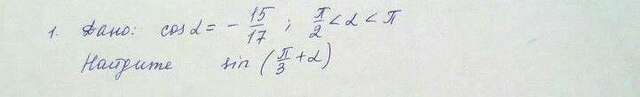 1. Дано: cos α = - 15/17 ; π/2 < α < π
Найдите sin (π/3 + α)